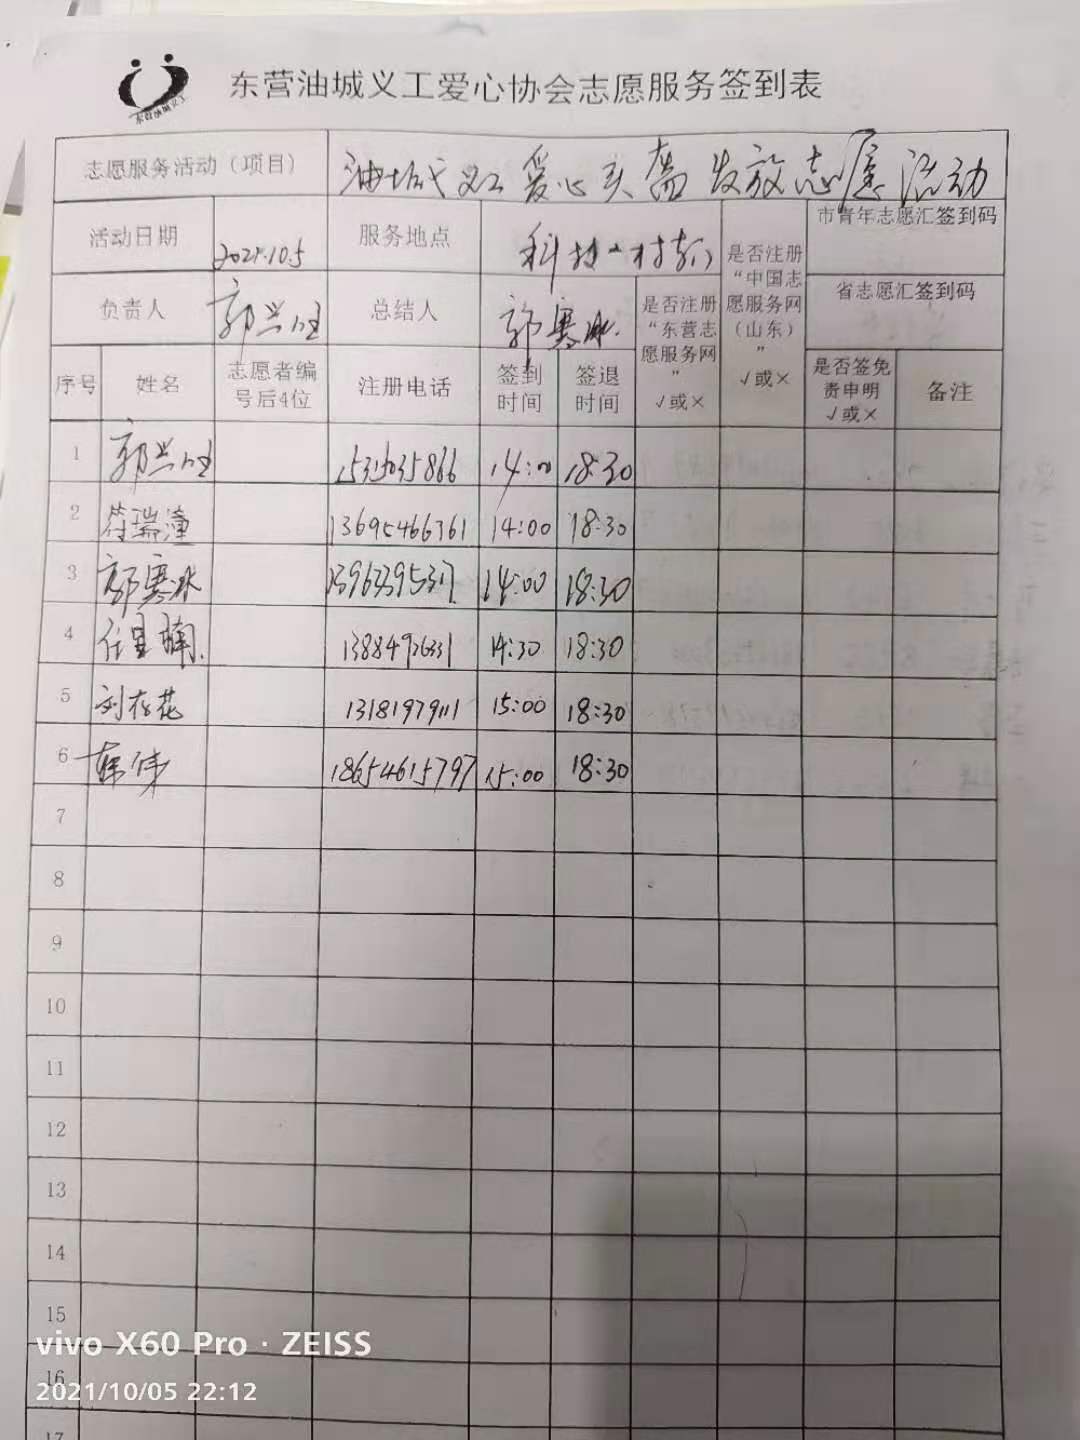 东营油城义工
东营油城义工爱心协会志愿服务签到表
志愿服务活动（项目） 油城义工爱心头盔发放志愿活动
活动日期 2021.10.5 服务地点 科技
是否注册“中国志愿服务网（山东）” √或×
市青年志愿汇签到码
负责人 郭兴 总结人 郭寒冰
是否注册“东营志愿服务网” √或×
省志愿汇签到码
序号 姓名 志愿者编号后4位 注册电话 签到时间 签退时间 是否签免责申明 √或× 备注
1 郭兴 14:00 18:30
2 符瑞潼 13695466361 14:00 18:30
3 郭寒冰 13963395317 14:00 18:30
4 任 14:30 18:30
5 刘存花 13181979111 15:00 18:30
6 韩伟 18654615797 15:00 18:30
7
8
9
10
11
12
13
14
15
vivo X60 Pro · ZEISS
16
2021/10/05 22:12
17